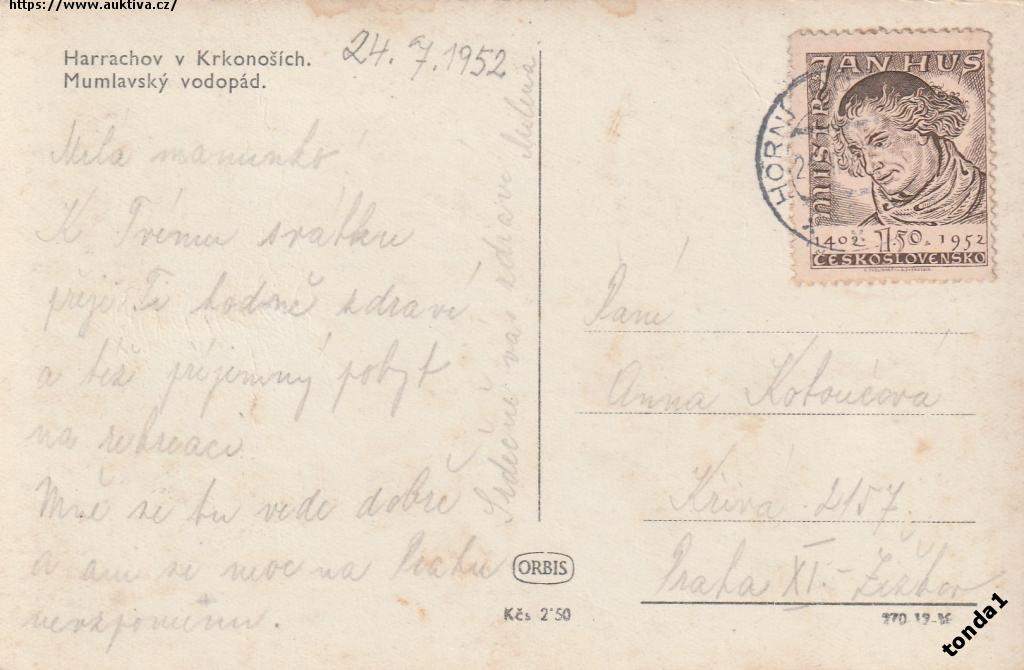 https://www.auktiva.cz/
Harrachov v Krkonoších.
Mumlavský vodopád.
24. 7. 1952
Milá maminko!
K Tvému svátku
přeji Ti hodně zdraví
a též příjemný pobyt
na rekreaci.
Mně se tu vede dobře
a ani se moc na Prahu
nevzpomínu.
Srdečně vás zdraví Milena
MISTR JAN HUS
1402 1.50 1952
ČESKOSLOVENSKO
HORNÍ
Paní
Anna Kotoučová
Křivá 2157
Praha XI. - Žižkov
ORBIS
Kčs 2'50
tonda1